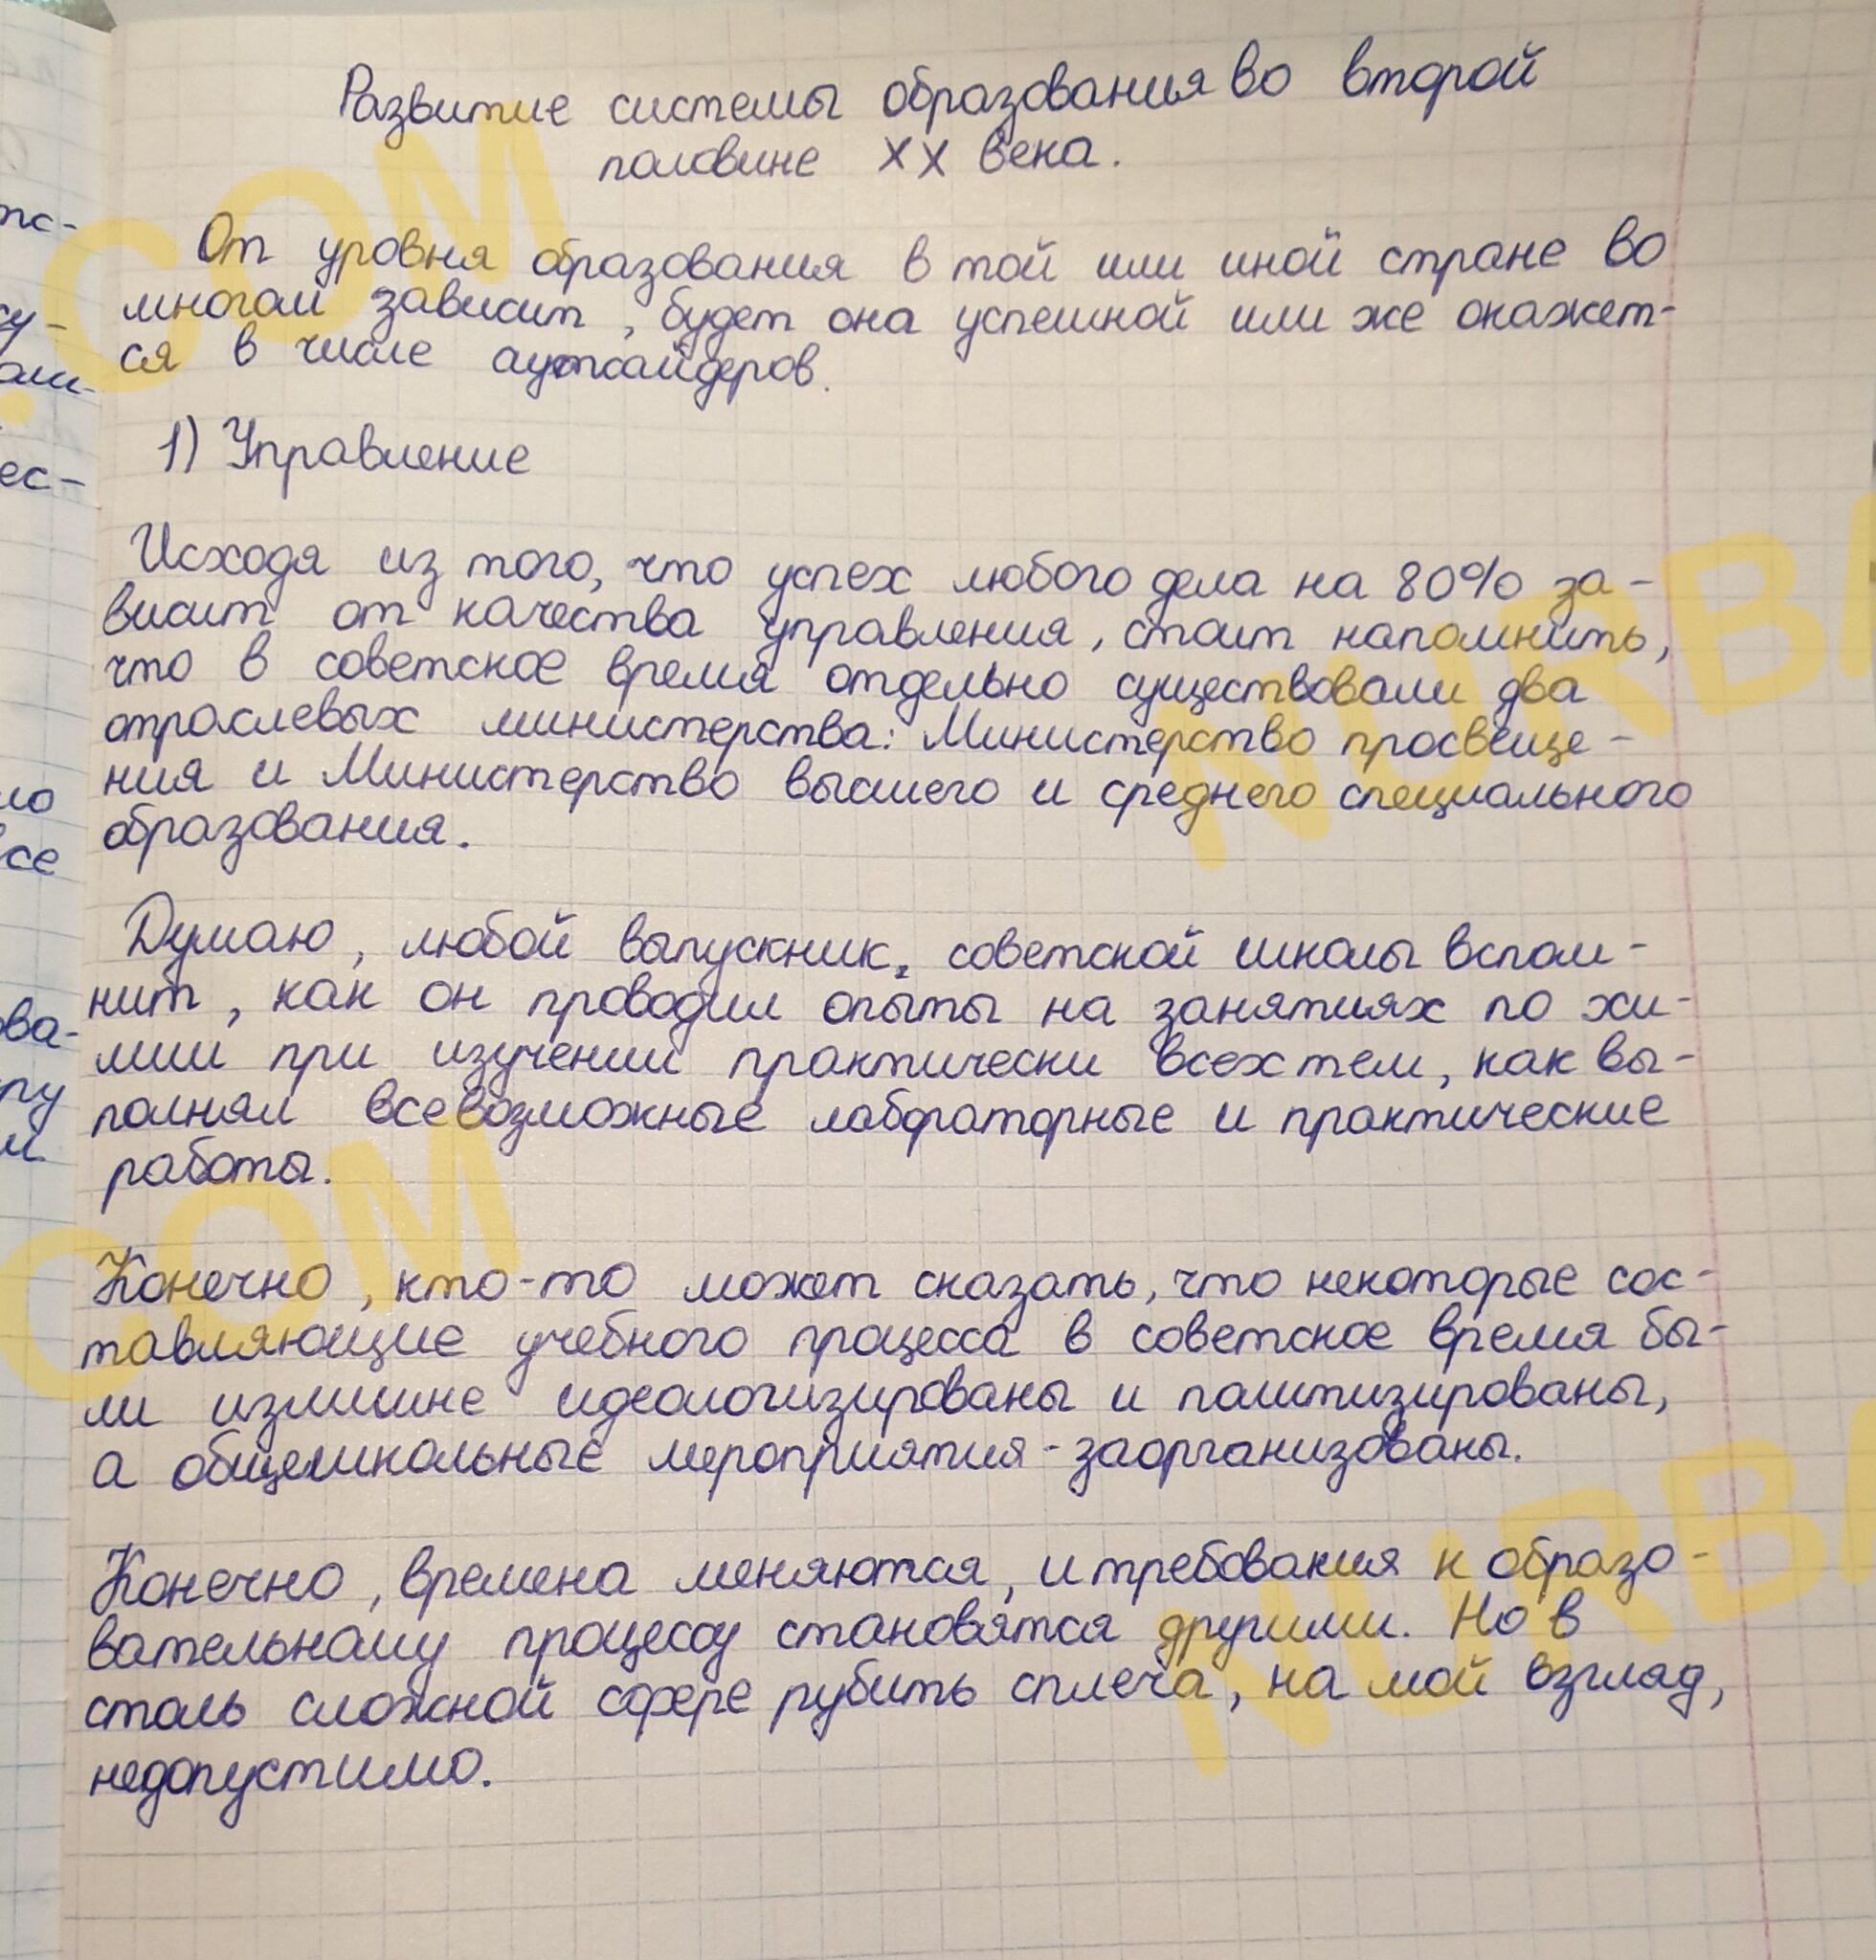 Развитие системы образования во второй
половине XX века.
От уровня образования в той или иной стране во
многом зависит, будет она успешной или же окажет-
ся в числе аутсайдеров.
1) Управление
Исходя из того, что успех любого дела на 80% за-
висит от качества управления, стоит напомнить,
что в советское время отдельно существовали два
отраслевых министерства: Министерство просвеще-
ния и Министерство высшего и среднего специального
образования.
Думаю, любой выпускник, советской школы вспом-
нит, как он проводил опыты на занятиях по хи-
мии при изучении практически всех тем, как вы-
полнял всевозможные лабораторные и практические
работы.
Конечно, кто-то может сказать, что некоторые сос-
тавляющие учебного процесса в советское время бы-
ли излишне идеологизированы и политизированы,
а общешкольные мероприятия - заорганизованы.
Конечно, времена меняются, и требования к образо-
вательному процессу становятся другими. Но в
столь сложной сфере рубить сплеча, на мой взгляд,
недопустимо.
.COM
NURBA
COM
NURBA